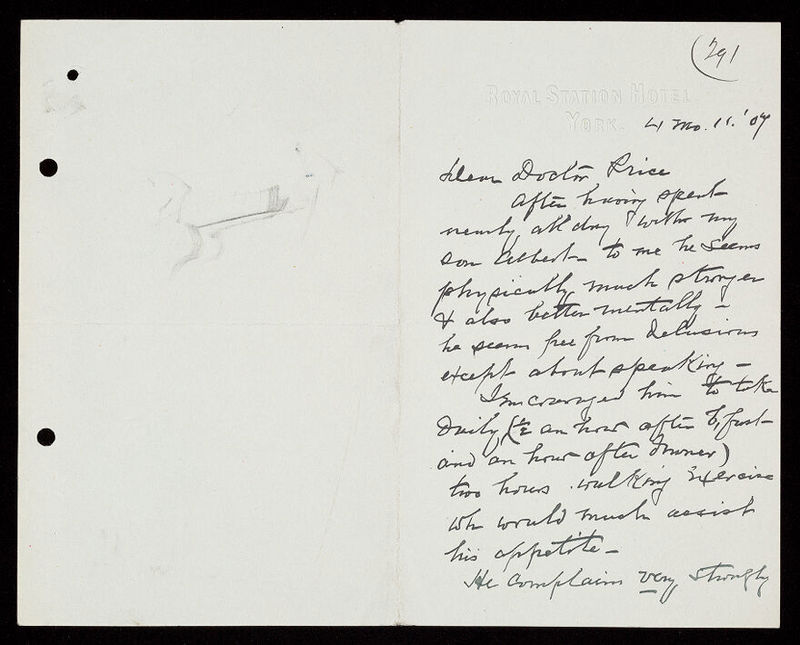 291
ROYAL STATION HOTEL
YORK.
4 mo. 11. '07
Dear Doctor Price
After having spent
nearly all day with my
son Albert - to me he seems
physically much stronger
& also better mentally -
he seems free from delusions
except about speaking -
I encouraged him to take
Daily, (½ an hour after b'fast
and an hour after dinner)
two hours walking exercise
wh would much assist
his appetite -
He complains very strongly